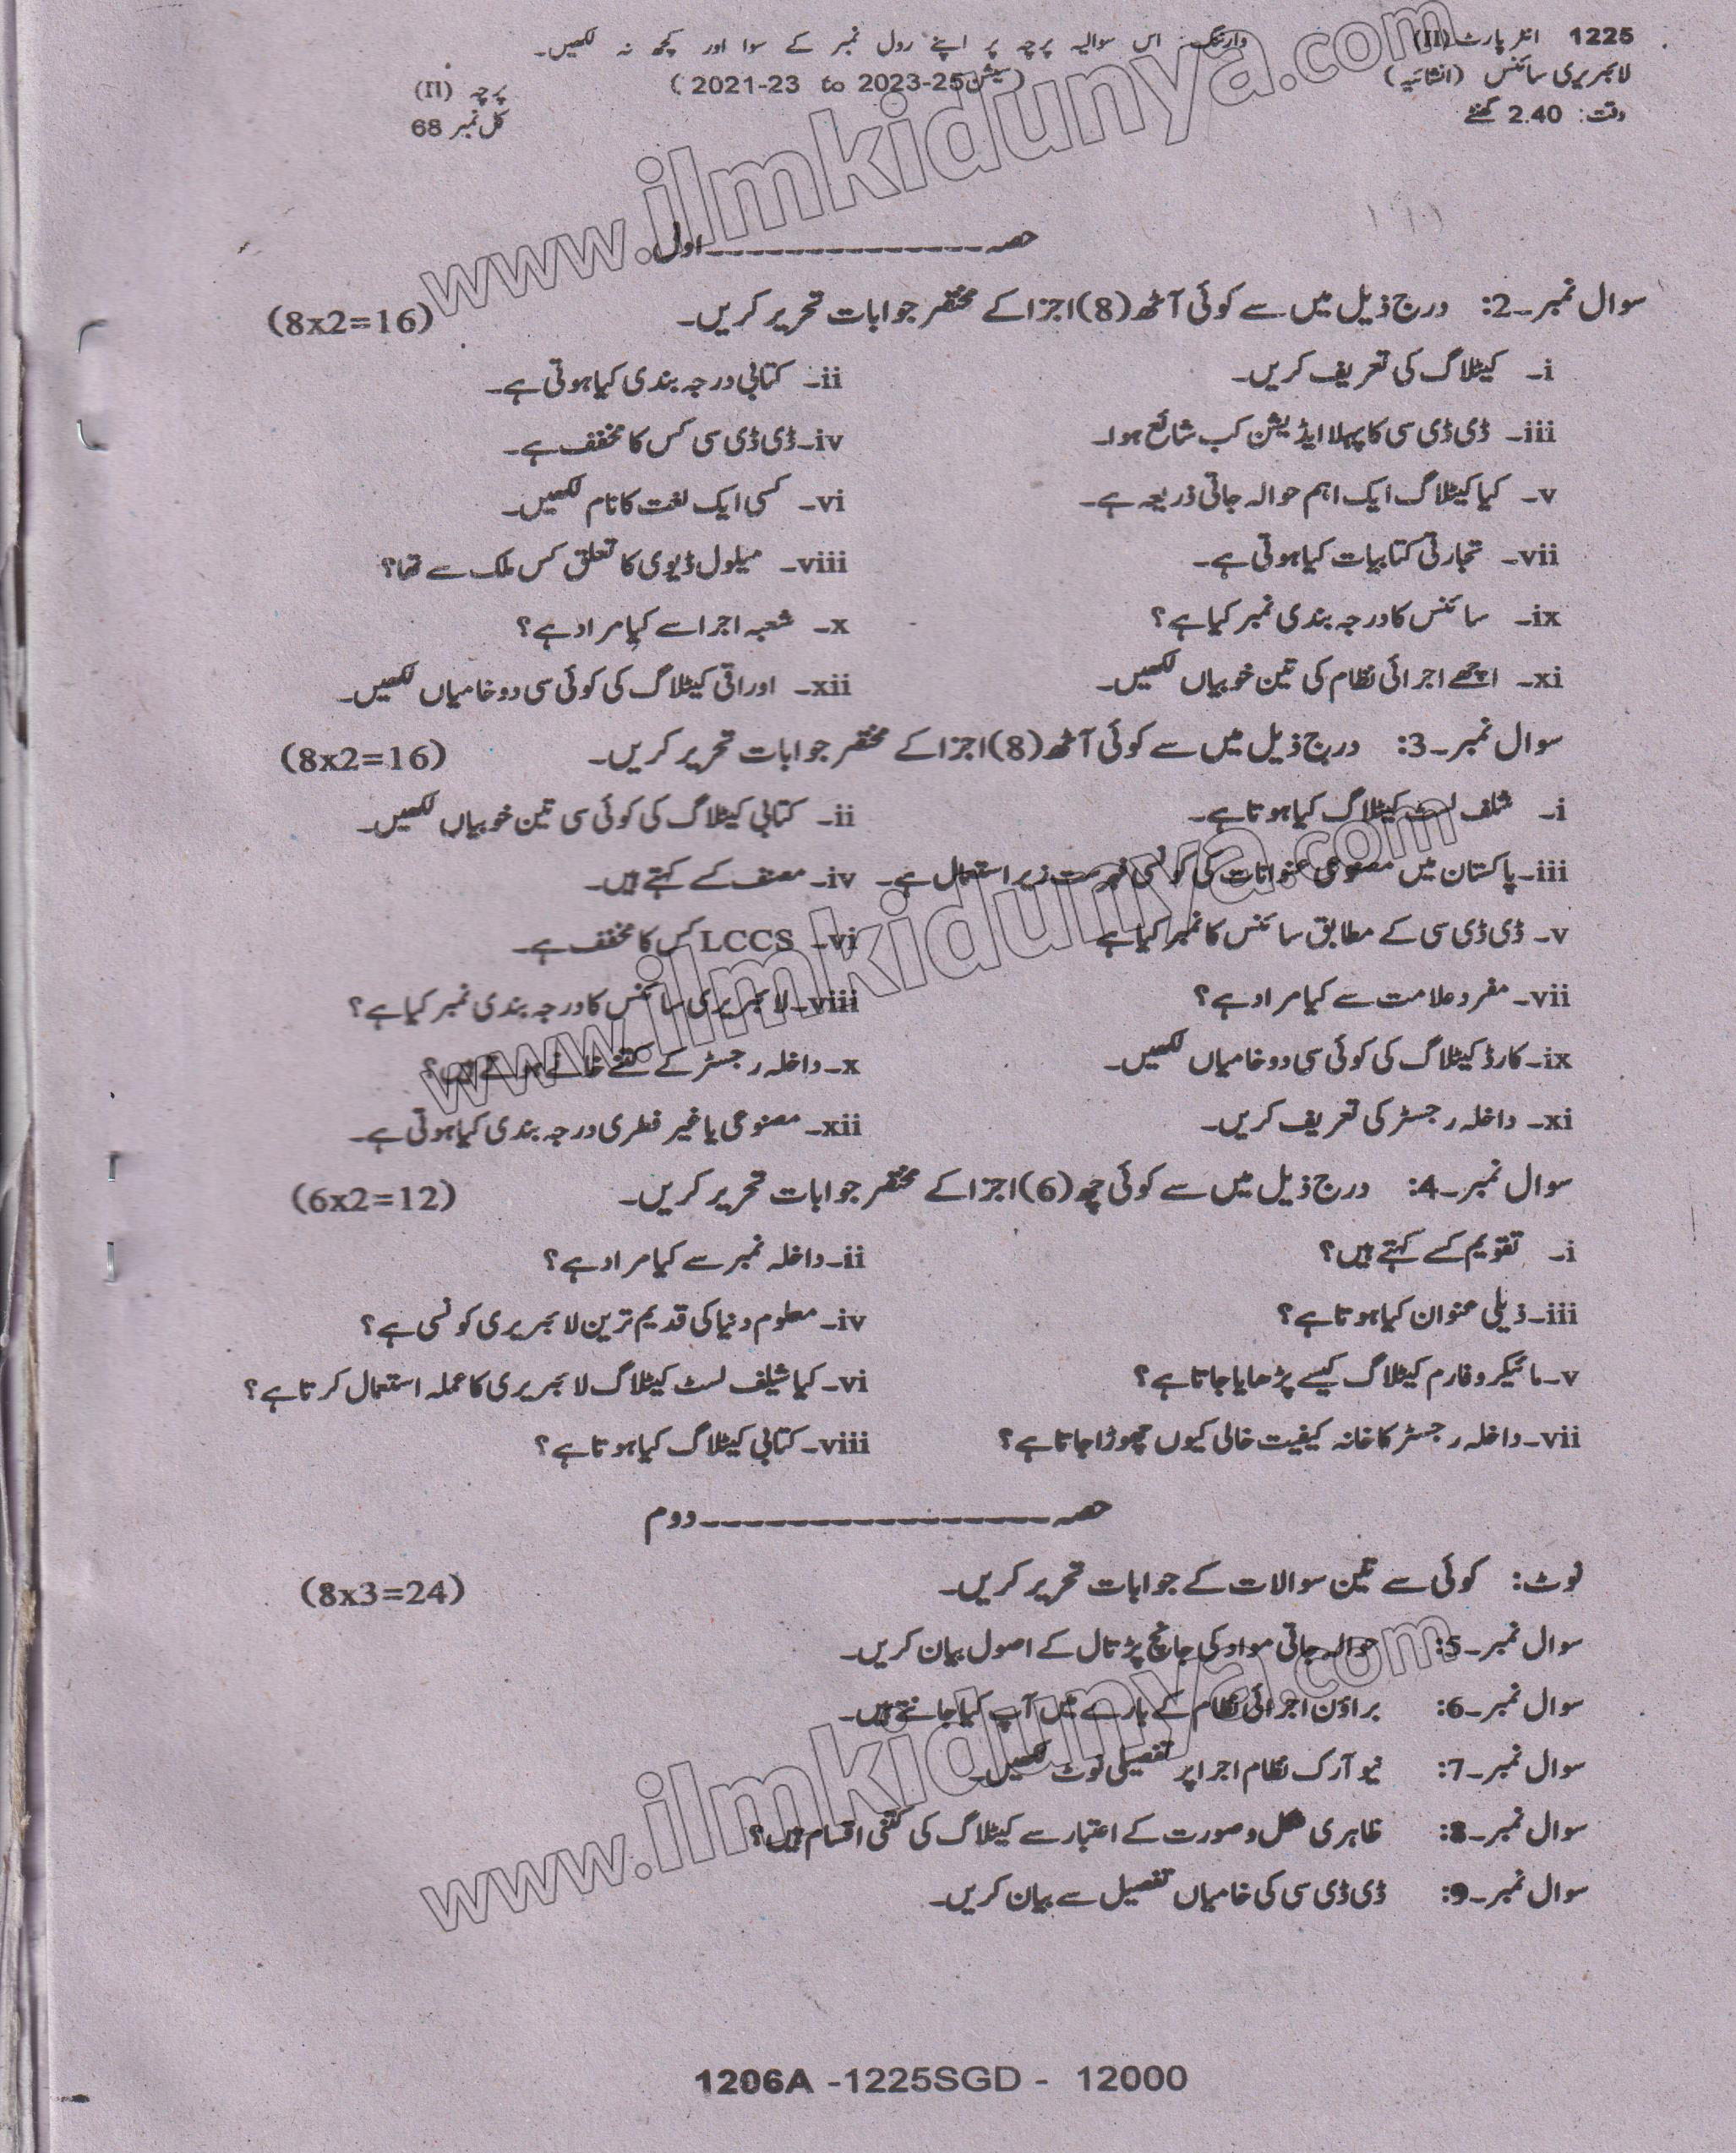 1225 انٹر پارٹ (II) وارننگ: اس سوالیہ پرچہ پر اپنے رول نمبر کے سوا اور کچھ نہ لکھیں۔
لائبریری سائنس (انشائیہ) (سیشن 2021-23 to 2023-25) پرچہ (II)
وقت: 2.40 گھنٹے کل نمبر 68
حصہ ــــــــــــــــ اول
سوال نمبر۔2: درج ذیل میں سے کوئی آٹھ (8) اجزا کے مختصر جوابات تحریر کریں۔ (8x2=16)
i۔ کیٹلاگ کی تعریف کریں۔ ii۔ کتابی درجہ بندی کیا ہوتی ہے۔
iii۔ ڈی ڈی سی کا پہلا ایڈیشن کب شائع ہوا۔ iv۔ ڈی ڈی سی کس کا مخفف ہے۔
v۔ کیا کیٹلاگ ایک اہم حوالہ جاتی ذریعہ ہے۔ vi۔ کسی ایک لغت کا نام لکھیں۔
vii۔ تجارتی کتابیات کیا ہوتی ہے۔ viii۔ میلول ڈیوی کا تعلق کس ملک سے تھا؟
ix۔ سائنس کا درجہ بندی نمبر کیا ہے؟ x۔ شعبہ اجرا سے کیا مراد ہے؟
xi۔ اچھے اجرائی نظام کی تین خوبیاں لکھیں۔ xii۔ اوراقی کیٹلاگ کی کوئی سی دو خامیاں لکھیں۔
سوال نمبر۔3: درج ذیل میں سے کوئی آٹھ (8) اجزا کے مختصر جوابات تحریر کریں۔ (8x2=16)
i۔ شلف لسٹ کیٹلاگ کیا ہوتا ہے۔ ii۔ کتابی کیٹلاگ کی کوئی سی تین خوبیاں لکھیں۔
iii۔ پاکستان میں عنوانات کی کونسی فہرست زیر استعمال ہے۔ iv۔ مصنف کسے کہتے ہیں۔
v۔ ڈی ڈی سی کے مطابق سائنس کا نمبر کیا ہے vi۔ LCCS کس کا مخفف ہے۔
vii۔ مفرد علامت سے کیا مراد ہے؟ viii۔ لائبریری سائنس کا درجہ بندی نمبر کیا ہے؟
ix۔ کارڈ کیٹلاگ کی کوئی سی دو خامیاں لکھیں۔ x۔ داخلہ رجسٹر کے کتنے خانے ہوتے ہیں؟
xi۔ داخلہ رجسٹر کی تعریف کریں۔ xii۔ مصنوعی یا غیر فطری درجہ بندی کیا ہوتی ہے۔
سوال نمبر۔4: درج ذیل میں سے کوئی چھ (6) اجزا کے مختصر جوابات تحریر کریں۔ (6x2=12)
i۔ تقویم کسے کہتے ہیں؟ ii۔ داخلہ نمبر سے کیا مراد ہے؟
iii۔ ذیلی عنوان کیا ہوتا ہے؟ iv۔ معلوم دنیا کی قدیم ترین لائبریری کونسی ہے؟
v۔ مائیکروفارم کیٹلاگ کیسے پڑھایا جاتا ہے؟ vi۔ کیا شیلف لسٹ کیٹلاگ لائبریری کا عملہ استعمال کرتا ہے؟
vii۔ داخلہ رجسٹر کا خانہ کیفیت خالی کیوں چھوڑا جاتا ہے؟ viii۔ کتابی کیٹلاگ کیا ہوتا ہے؟
حصہ ــــــــــــــــ دوم
نوٹ: کوئی سے تین سوالات کے جوابات تحریر کریں۔ (8x3=24)
سوال نمبر۔5: حوالہ جاتی مواد کی جانچ پڑتال کے اصول بیان کریں۔
سوال نمبر۔6: براؤن اجرائی نظام کے بارے میں آپ کیا جانتے ہیں۔
سوال نمبر۔7: نیو آرک نظام اجرا پر تفصیلی نوٹ لکھیں۔
سوال نمبر۔8: ظاہری شکل و صورت کے اعتبار سے کیٹلاگ کی کتنی اقسام ہیں؟
سوال نمبر۔9: ڈی ڈی سی کی خامیاں تفصیل سے بیان کریں۔
1206A -1225SGD - 12000
www.ilmkidunya.com
www.ilmkidunya.com
www.ilmkidunya.com